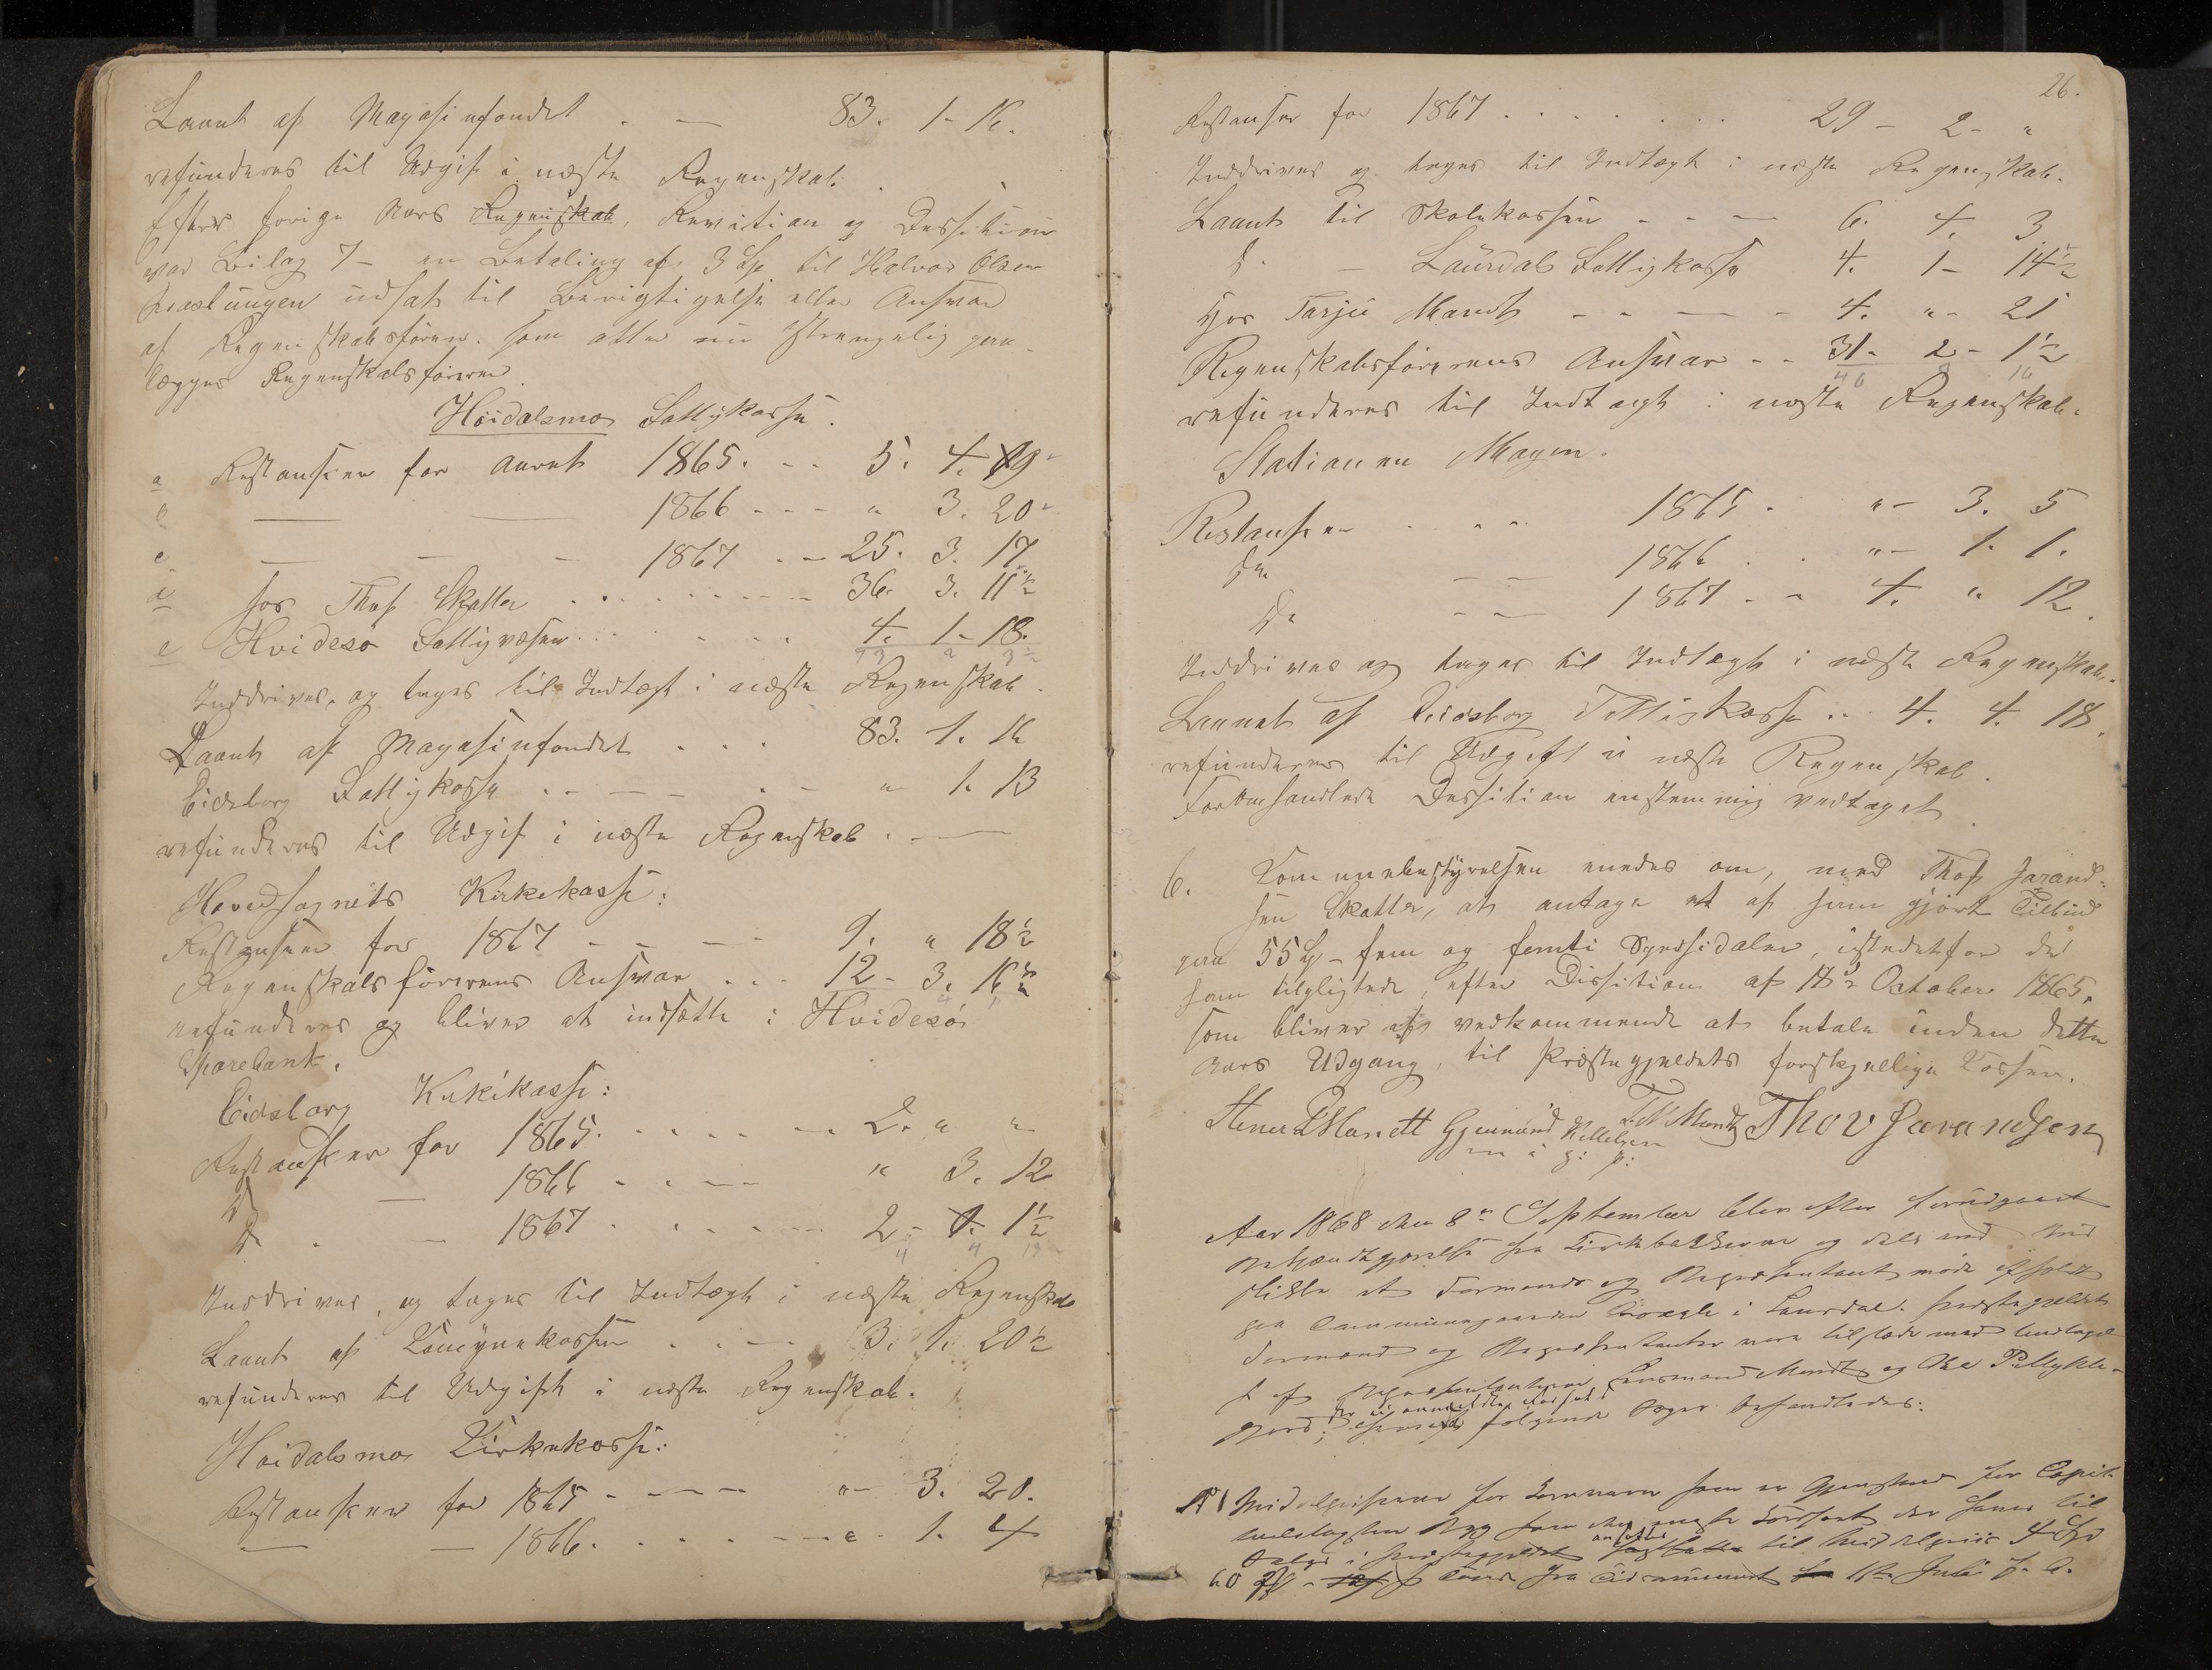 Laant af Magasinfondet . — 83. 1 - 16.
refunderes til Udgift i næste Regenskab.
Efter forige Aars Regenskab, Revition og Dessition
var Bilag 7 — en Betaling af 3 Sp til Halvor Olsen
udsat til Berigtigelse eller Ansvar
af Regenskabsføren. som atter nu strengelig paa-
lægges Regenskabsføreren
Høidalsmo Fattigkasse.
a Restanser for Aaret 1865. - - 5. 4. 19
b — — 1866 - - - " 3. 20
c — — 1867 . - 25. 3. 17.
d hos Thof Skatter . . . . . 36. 3. 11½
e Hvidesø Fattigvæsen . . . . 4. 1 - 18.
Inddrives, og tages til Indtægt i næste Regenskab.
Laant af Magasinfondet . . . 83. 1. 16
Eidsborg Fattigkasse . . — — . - " 1. 13
refunderes til Udgift i næste Regenskab. —
Hovedsognets Kirkekasse:
Restanser for 1867 - - - - 9. " 18½
Regenskabsførerens Ansvar . . . 12 - 3. 16½
refunderes og bliver at indsætte i Hvidesø
Sparebank.
Eidsborg Kirkekasse:
Restanser for 1865. . . . . 2. " "
D — 1866 . . . . " 3. 12
D . — 1867 . . . . 2 - 1. 1½
Inddrives, og tages til Indtægt i næste Regenskab
Laant af Comunekassen . . . - 3. 1. 20½
refunderes til Udgift i næste Regenskab.
Høidalsmo Kirkekasse:
Restanser for 1865 - - - - " - 3. 20.
— — 1866. . . . . . - - " - 1. 4
26.
Restanser for 1867 . . . . . . . 29 - 2 - "
Inddrives og tages til Indtægt i næste Regenskab.
Laant til Skolekassen - - — 6. 4. 3
D. — Laurdals Fattigkasse 4. 1 - 14½
Hos Tarju Mandt - - — - 4. " - 21
Regenskabsførerens Ansvar - - 31 - 2 - 1½
refunderes til Indtægt i næste Regenskab.
Stationen Mogen.
Restanser . . " 1865 . " - 3. 5
Do — — 1866 . . " - 1. 1.
Do — — 1867 - - 4. " 12.
Inddrives og tages til Indtægt i næste Regenskab.
Laant af Eidsborg Fattigkasse . . 4. 4. 18.
refunderes til Udgift i næste Regenskab.
Foromhandlede Dessition enstemmig vedtaget.
6. Kommunebestyrelsen enedes om, med Thof Jarand-
sen Skatter, at antage et af ham gjort Tilbud
paa 55 Sp - fem og femti Spesidaler, istedetfor det
ham tilpligtede, efter Dissition af 18de October 1865,
som bliver af vedkommende at betale inden dette
Aars Udgang, til Præstegjeldets forskjellige Kasser.
Stener T Mandt Gjermund Kittelsen T. N. Mandt Thov Jarandsen
m i g: p:
Aar 1868 den 8de September blev efter forudgaaet
Bekjendtgjørelse fra Kirkebakkerne og dels ved Bud
stikke et Formands og Representant møde afholdt
paa Communegaarden i Laurdal. Præstegjeldets
Formænd og Representanter vare tilstede med Undtagel-
se af Representanterne Lensmand Mandt og Ole
hvorefter følgende Sager behandledes:
No 1 Middelprisen for Kornvarer som er Gjenstand for Capit-
Byg som den Kornsort der haves til
Salgs i Præstegjeldet til Middelpriis 4 Spd
60 Tønde fra 1ste Juli f. A.